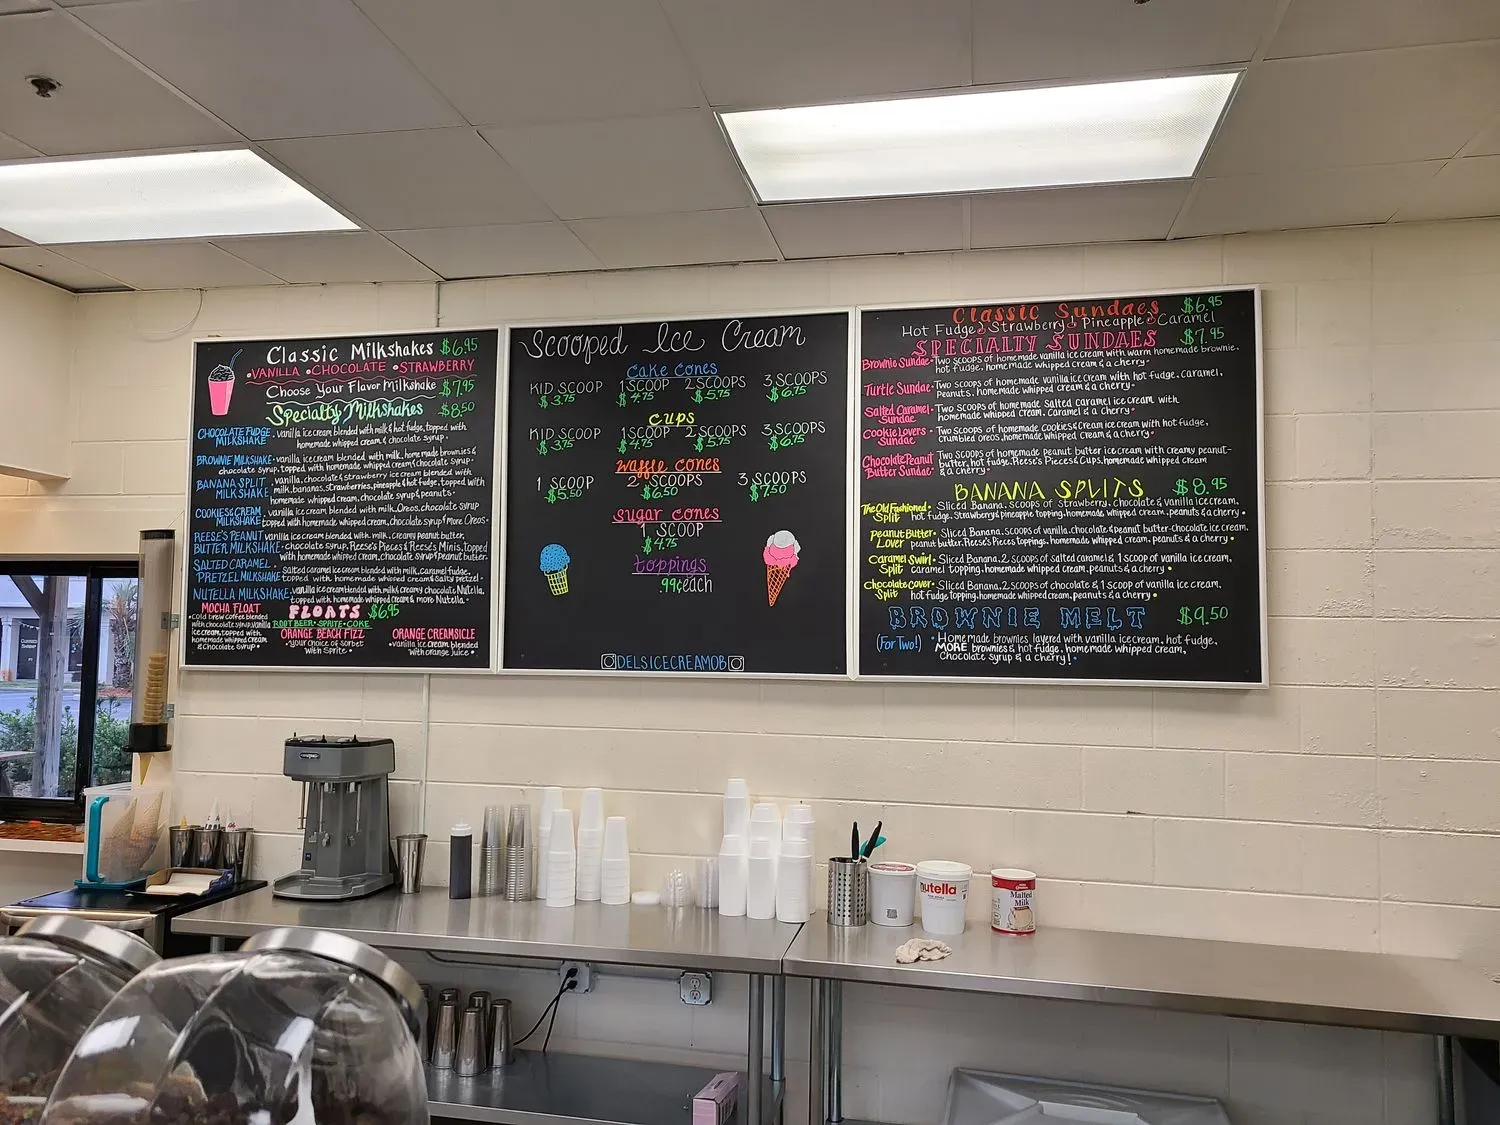 Classic Milkshakes $6.95
•VANILLA •CHOCOLATE •STRAWBERRY
Choose Your Flavor Milkshake $7.95
Specialty Milkshakes $8.50
CHOCOLATE FUDGE MILKSHAKE • vanilla ice cream blended with milk & hot fudge, topped with
homemade whipped cream & chocolate syrup •
BROWNIE MILKSHAKE • vanilla ice cream blended with milk, homemade brownies &
chocolate syrup, topped with homemade whipped cream & chocolate syrup •
BANANA SPLIT MILKSHAKE • vanilla, chocolate & strawberry ice cream blended with
milk, bananas, strawberries, pineapple & hot fudge, topped with
homemade whipped cream, chocolate syrup & peanuts •
COOKIES & CREAM MILKSHAKE • vanilla ice cream blended with milk, Oreos, chocolate syrup
topped with homemade whipped cream, chocolate syrup & more Oreos •
REESE'S PEANUT BUTTER MILKSHAKE • vanilla ice cream blended with milk, creamy Peanut Butter,
chocolate syrup, Reese's Pieces & Reese's Minis, topped
with homemade whipped cream, chocolate syrup & peanut butter •
SALTED CARAMEL PRETZEL MILKSHAKE • Salted caramel ice cream blended with milk, caramel, fudge,
topped with homemade whipped cream & salty pretzel •
NUTELLA MILKSHAKE • vanilla ice cream blended with milk & creamy chocolate Nutella,
topped with homemade whipped cream & more Nutella •
MOCHA FLOAT
•cold brew coffee blended
with chocolate syrup, vanilla
ice cream, topped with
homemade whipped cream
& chocolate syrup •
FLOATS $6.95
ROOT BEER • SPRITE • COKE
ORANGE BEACH FIZZ
•your choice of sorbet
with Sprite •
ORANGE CREAMSICLE
•vanilla ice cream blended
with orange juice •
Scooped Ice Cream
Cake Cones
KID SCOOP 1 SCOOP 2 SCOOPS 3 SCOOPS
$3.75 $4.75 $5.75 $6.75
CUPS
KID SCOOP 1 SCOOP 2 SCOOPS 3 SCOOPS
$3.75 $4.75 $5.75 $6.75
Waffle Cones
1 SCOOP 2 SCOOPS 3 SCOOPS
$5.50 $6.50 $7.50
Sugar Cones
1 SCOOP
$4.75
Toppings
.99¢ each
DELSICECREAMOB
Classic Sundaes $6.95
Hot Fudge, Strawberry, Pineapple, Caramel
SPECIALTY SUNDAES $7.95
Brownie Sundae • Two scoops of homemade vanilla ice cream with warm homemade brownie,
hot fudge, homemade whipped cream & a cherry •
Turtle Sundae • Two scoops of homemade vanilla ice cream with hot fudge, caramel,
Peanuts, homemade whipped cream & a cherry •
Salted Caramel Sundae • Two scoops of homemade Salted caramel ice cream with
homemade whipped cream, Caramel & a cherry •
Cookie Lovers Sundae • Two scoops of homemade Cookies & Cream ice cream with hot fudge,
crumbled oreos, homemade whipped cream & a cherry •
Chocolate Peanut Butter Sundae • Two scoops of homemade peanut butter ice cream with creamy peanut-
butter, hot fudge, Reese's Pieces & Cups, homemade whipped cream
& a cherry •
BANANA SPLITS $8.95
The Old Fashioned Split • Sliced Banana, scoops of strawberry, chocolate & vanilla ice cream,
hot fudge, strawberry & pineapple topping, homemade whipped cream, peanuts & a cherry •
Peanut Butter Lover • Sliced Banana, scoops of vanilla, chocolate & peanut butter-chocolate ice cream,
peanut butter, Reese's Pieces toppings, homemade whipped cream, peanuts & a cherry •
Caramel Swirl Split • Sliced Banana, 2 scoops of salted caramel & 1 scoop of vanilla ice cream,
caramel topping, homemade whipped cream, peanuts & a cherry •
Chocolate Lover Split • Sliced Banana, 2 scoops of chocolate & 1 scoop of vanilla ice cream,
hot fudge topping, homemade whipped cream, peanuts & a cherry •
BROWNIE MELT $9.50
(For Two!) • Homemade brownies layered with vanilla ice cream, hot fudge,
MORE brownies & hot fudge, homemade whipped cream,
Chocolate syrup & a cherry! •
nutella
Malted
Milk